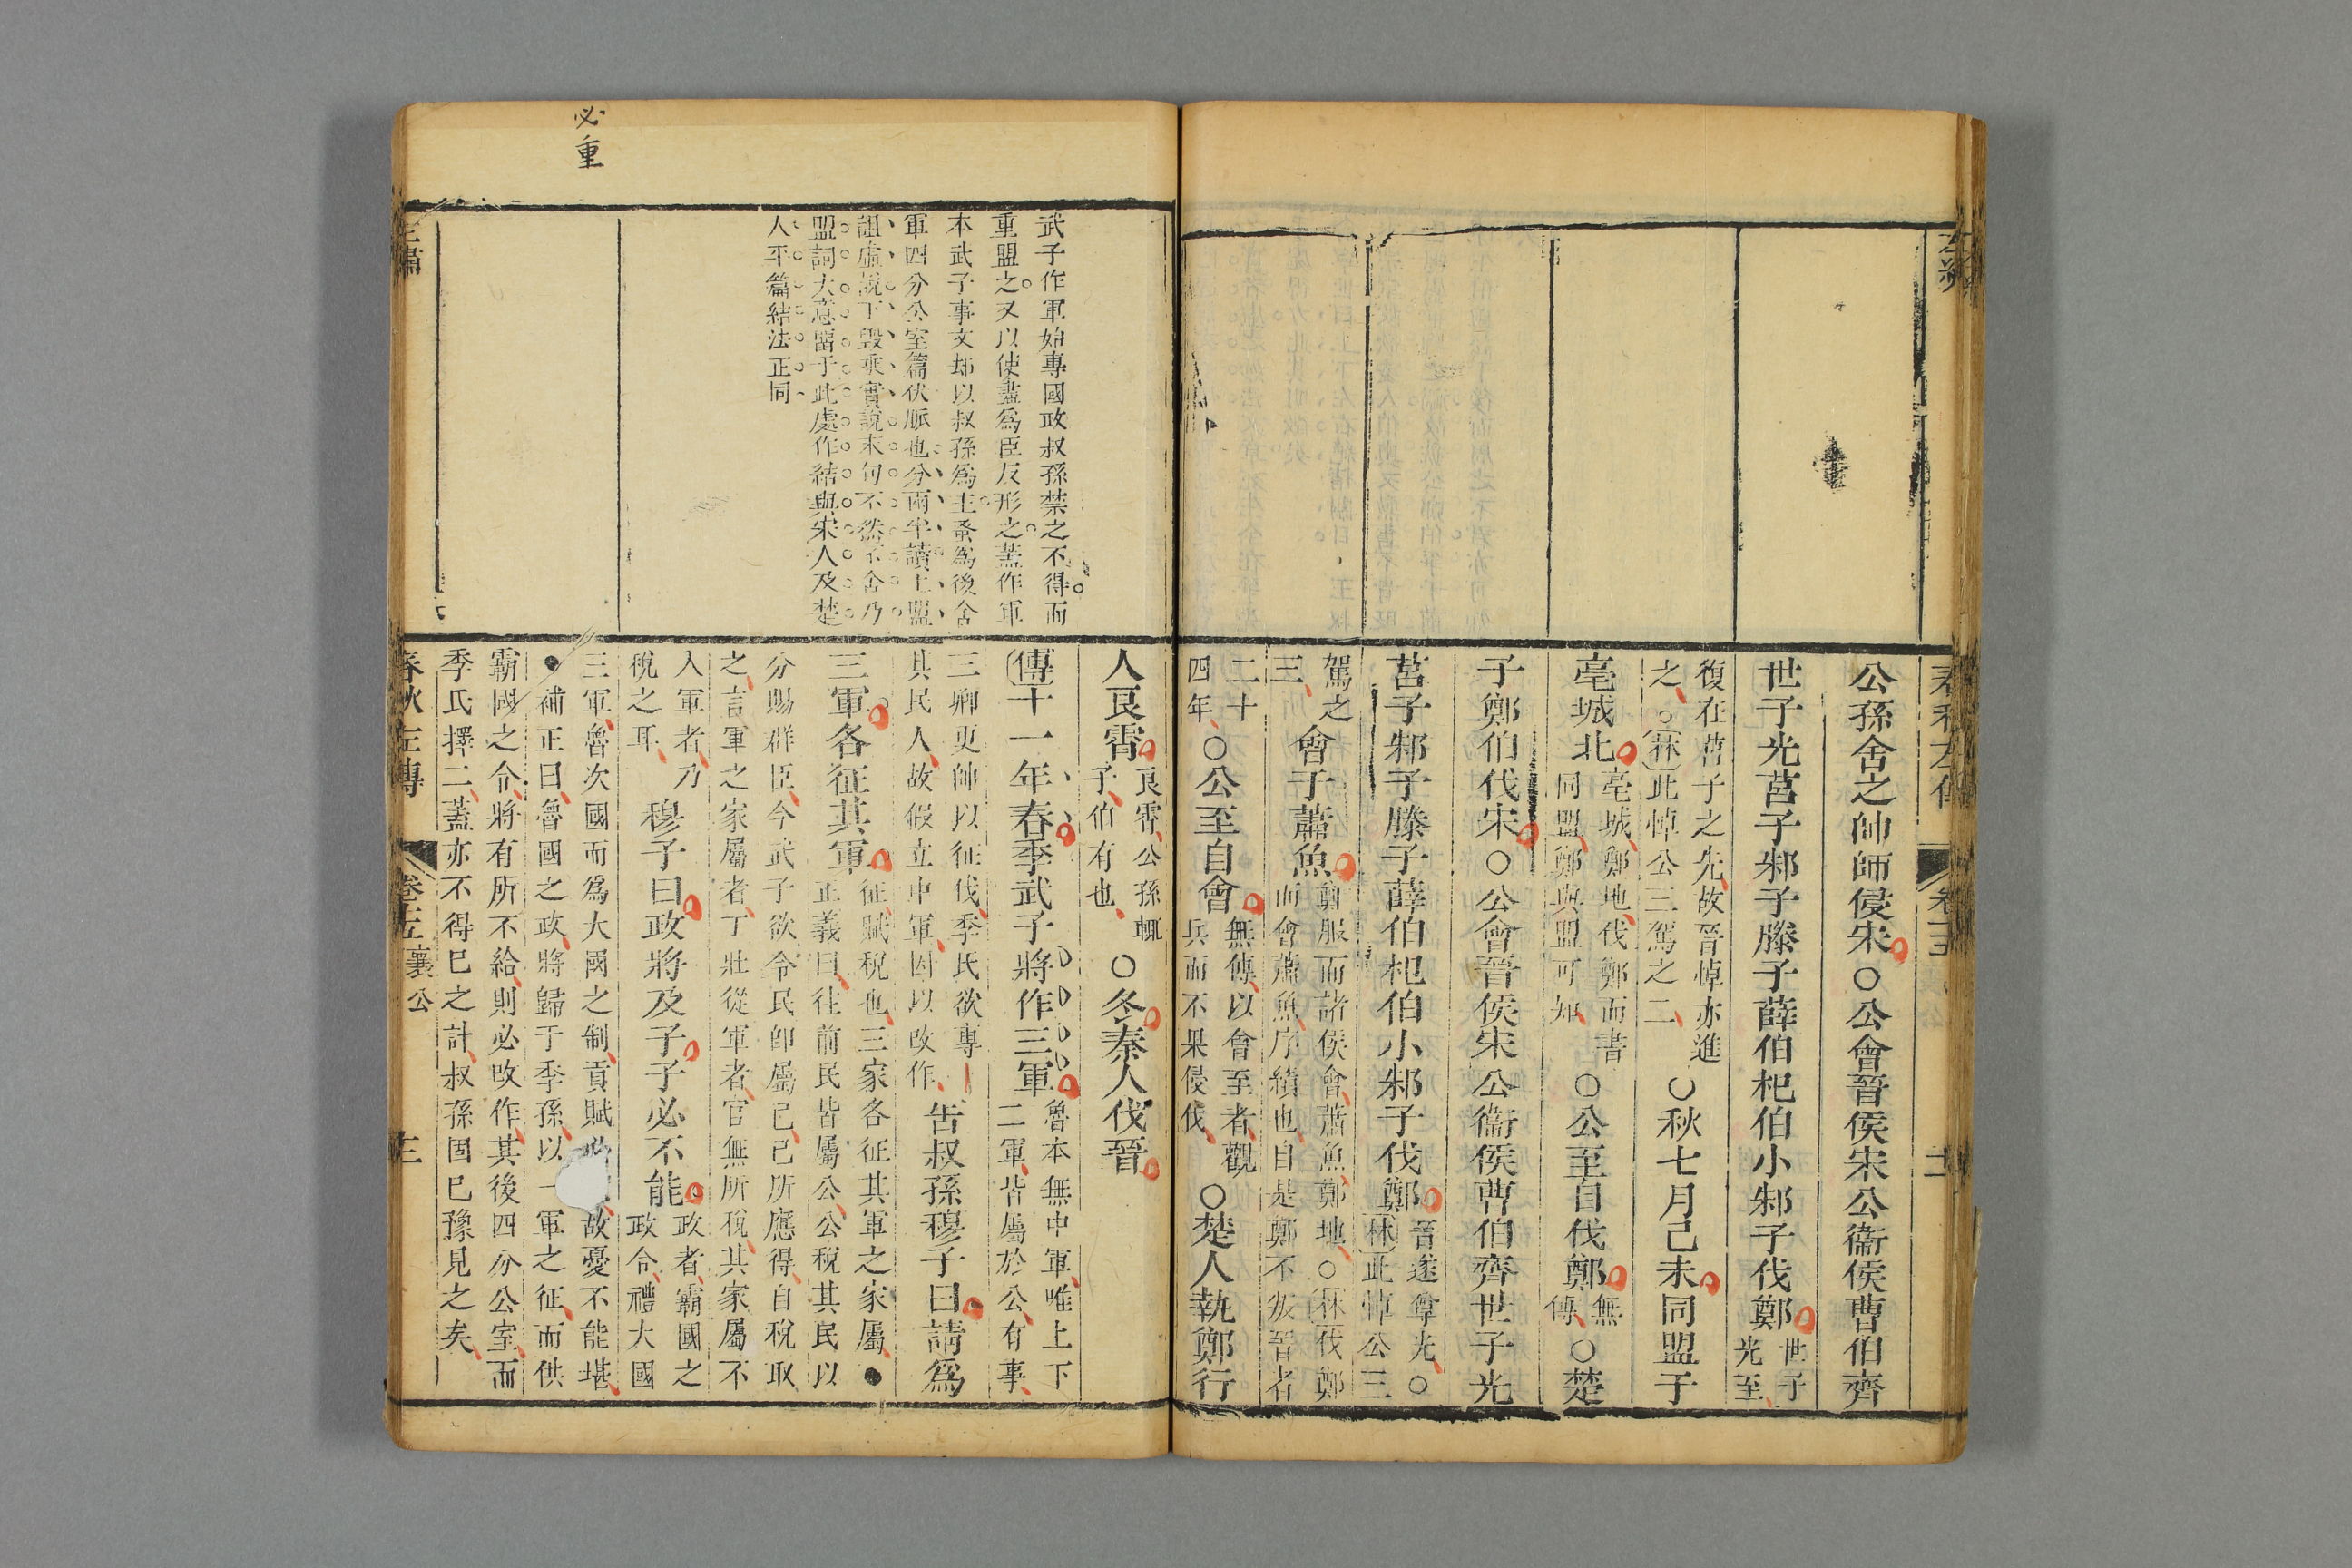 公孫舍之帥師侵宋○公會晉侯宋公衞侯曹伯齊
世子光莒子邾子滕子薛伯杞伯小邾子伐鄭
世子
光至
復在莒子之先故晉悼亦進
之○林此悼公三駕之二
○秋七月己未同盟于
亳城北
亳城鄭地伐鄭而書
同盟鄭與盟可知
○公至自伐鄭
無
傳
○楚
子鄭伯伐宋○公會晉侯宋公衞侯曹伯齊世子光
莒子邾子滕子薛伯杞伯小邾子伐鄭
晉遂尊光○
林此悼公三
駕之
三
會于蕭魚
鄭服而諸侯會蕭魚鄭地○林伐鄭
而會蕭魚序績也自是鄭不叛晉者
二十
四年
○公至自會
無傳以會至者觀
兵而不果侵伐
○楚人執鄭行
必重
武子作軍始專國政叔孫禁之不得而
重盟之又以使盡爲臣反形之蓋作軍
本武子事文却以叔孫爲主蚤爲後舍
軍四分公室篇伏脈也分兩半讀上盟
詛虛說下毀乘實說末句不然不舍乃
盟詞大意留于此處作結與宋人及楚
人平篇結法正同
人良霄
良霄公孫輒
子伯有也
○冬秦人伐晉
傳十一年春季武子將作三軍
魯本無中軍唯上下
二軍皆屬於公有事
三卿更帥以征伐季氏欲專
其民人故假立中軍因以改作
告叔孫穆子曰請爲
三軍各征其軍
征賦稅也三家各征其軍之家屬●
正義曰往前民皆屬公公稅其民以
分賜群臣今武子欲令民即屬己己所應得自稅取
之言軍之家屬者丁壯從軍者官無所稅其家屬不
入軍者乃
稅之耳
穆子曰政將及子子必不能
政者霸國之
政令禮大國
三軍魯次國而爲大國之制貢賦故憂不能堪
●補正曰魯國之政將歸于季孫以一軍之征而供
霸國之令將有所不給則必改作其後四分公室而
季氏擇二蓋亦不得已之計叔孫固已豫見之矣
春秋左傳
卷十五 襄公